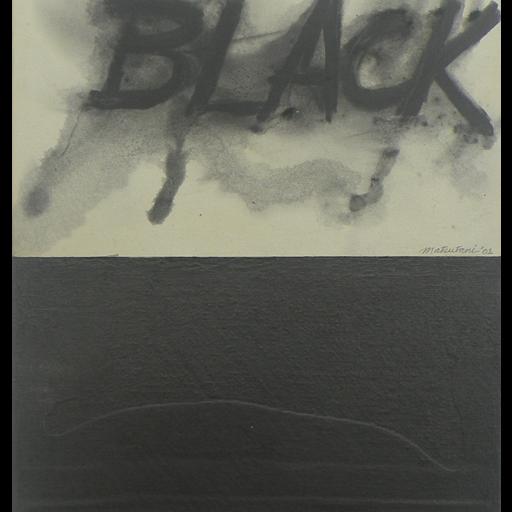 BLACK
Matsutani '02